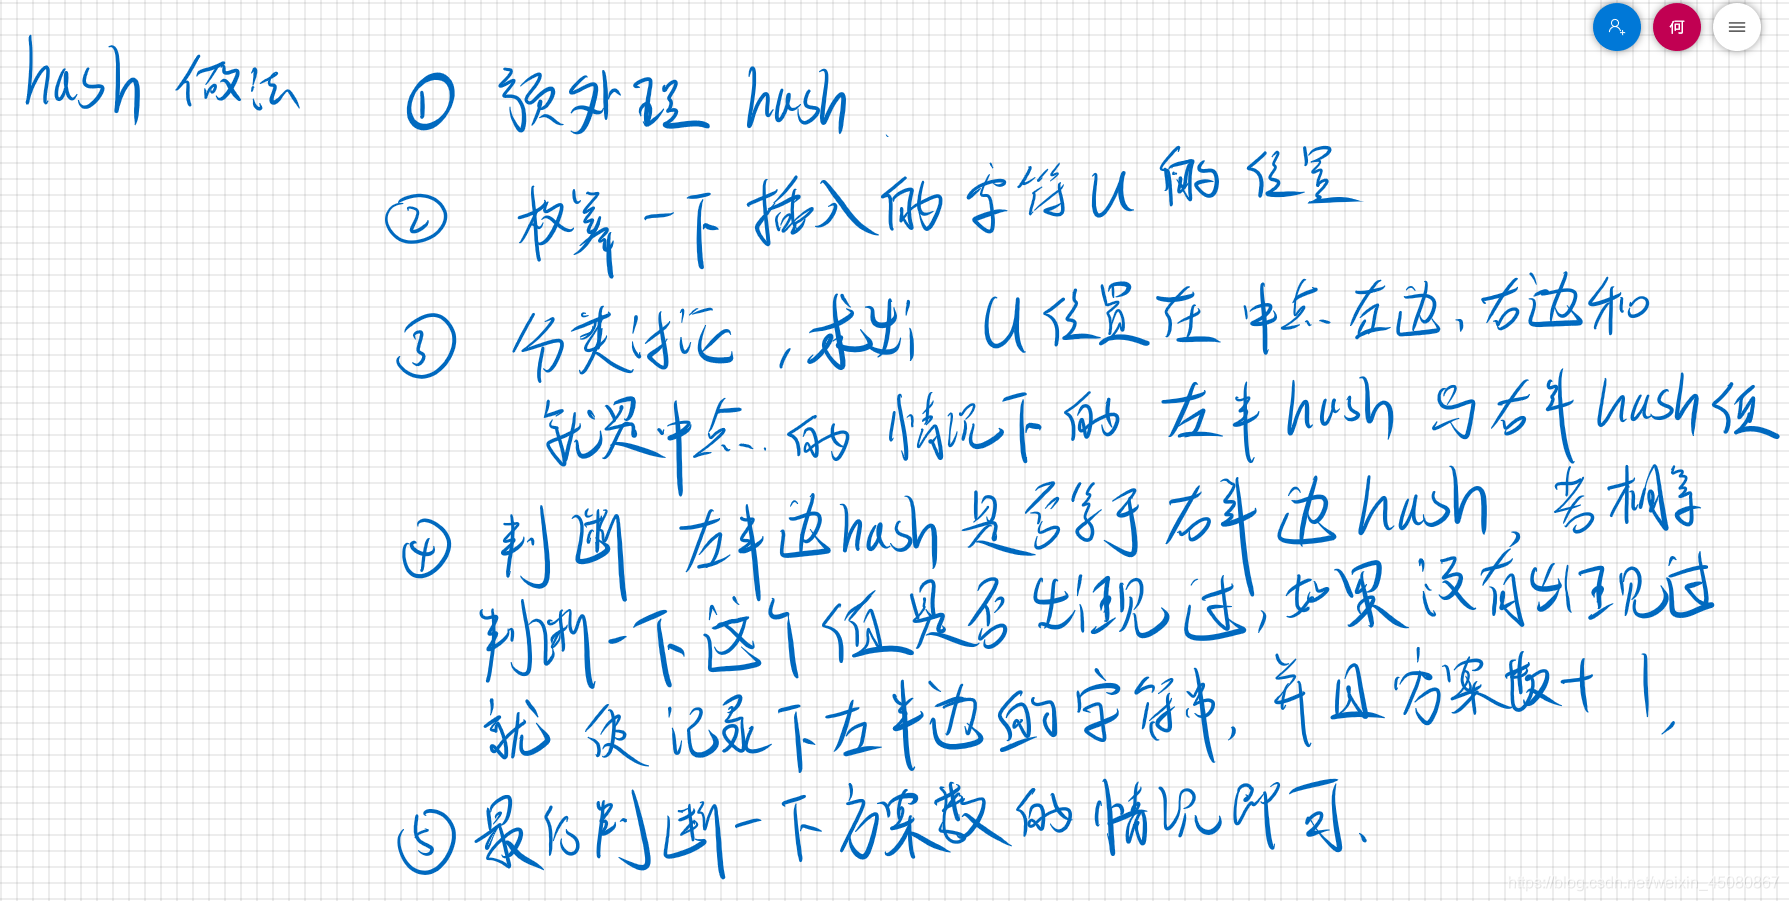 何
hash 做法
① 预处理 hash
② 枚举一下插入的字符U的位置
③ 分类讨论，求出 U位置在中点左边、右边和
就是中点的情况下的左半hash与右半hash值
④ 判断左半边hash是否等于右半边hash，若相等
判断一下这个值是否出现过，如果没有出现过
就使记录下左半边的字符串，并且方案数+1，
⑤ 最后判断一下方案数的情况即可、
https://blog.csdn.net/weixin_45080867